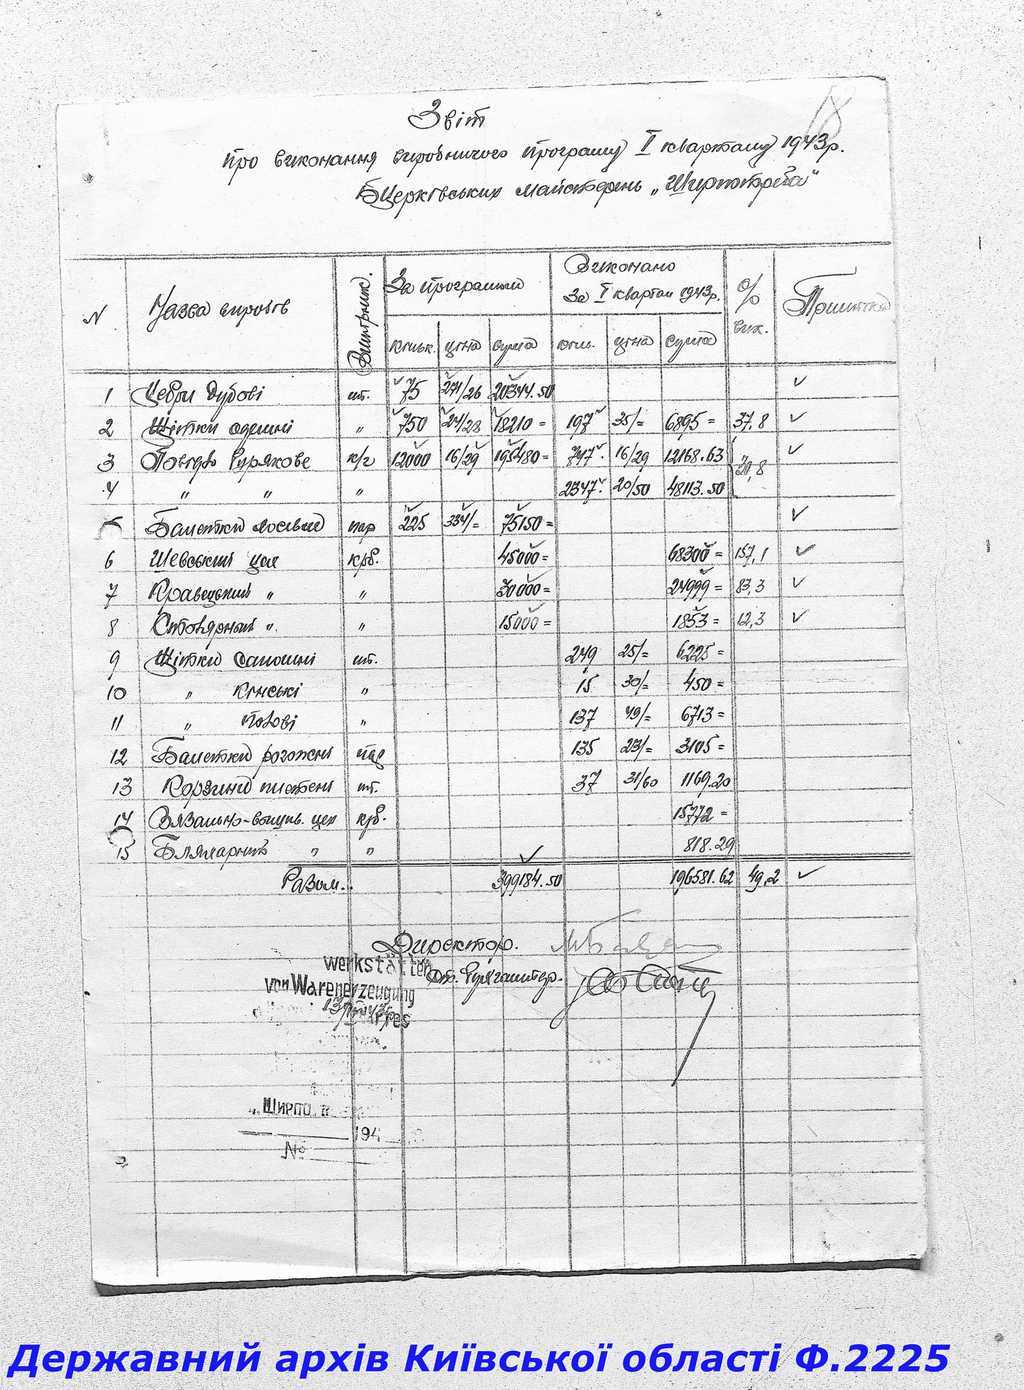 18
Звіт
про виконання виробничого програму II кварталу 1943р.
Б Церківських майстерень „Ширпотреба"
N Назва виробів За програмою Виконано за I квартал 1943р. % вик. Примітка
кільк. ціна сума кіль. ціна сума
1 Цебри дубові шт. 75 271/26 20344.50
2 Щітки одежні „ 750 24/28 18210= 197 35/= 6895= 37,8
3 Повидло бурякове к/г 12000 16/29 195480= 747 16/29 12168.63 30,8
4 „ „ „ 2347 20/50 48113.50
5 Балетки пар 225 334/= 75150=
6 Шевський цех крб. 45000= 68300= 157,1
7 Кравецький „ „ 30000= 24999= 83,3
8 Столярний „ „ 15000= 1853= 12,3
9 Щітки шт. 249 25/= 6225=
10 „ кінські „ 15 30/= 450=
11 „ „ 137 49/= 6713=
12 Балетки рогожні пар 135 23/= 3105=
13 Корзини плетені шт. 37 31/60 1169.20
14 цех крб. 15772=
15 Бляхарний „ „ 818.29
Разом.. 399184.50 196581.62 49,2
Директор.
Werkstätten
von Warenerzeugung
Ст. бухгалтер.
„Ширпо
194
№
Державний архів Київської області Ф.2225